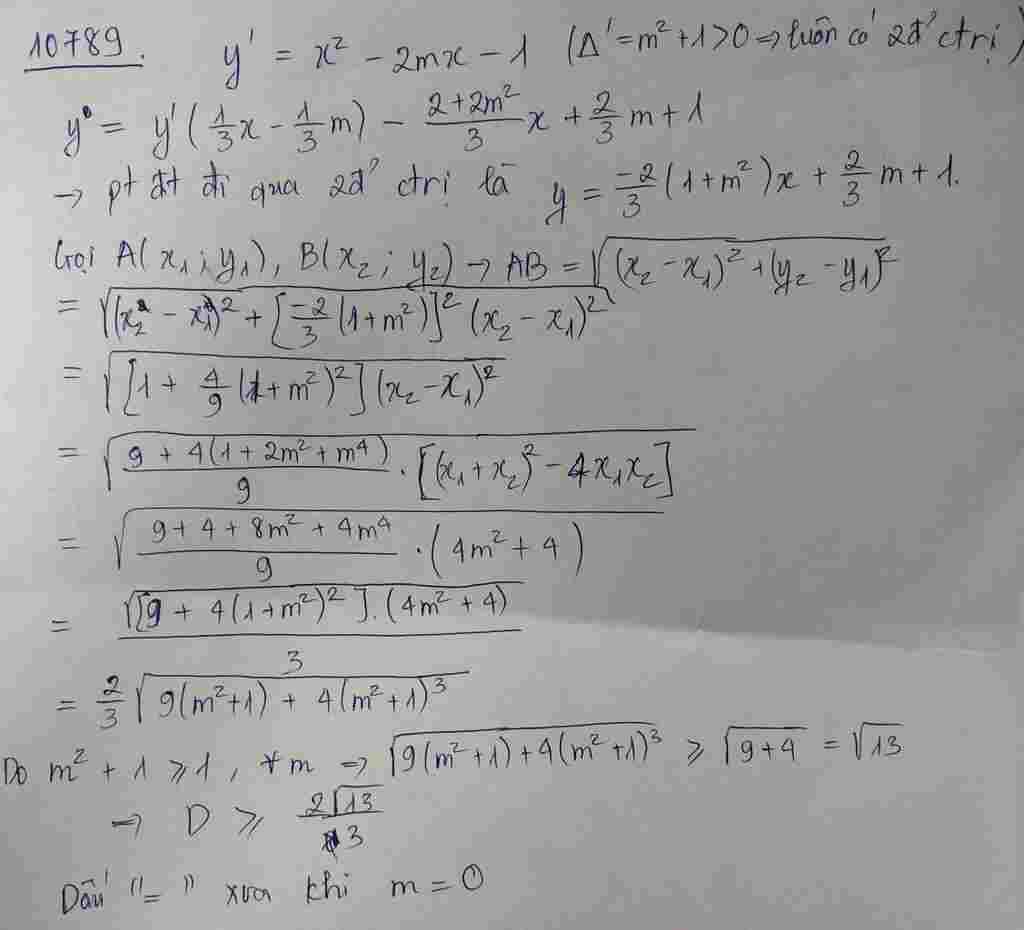 10789. y' = x² - 2mx - 1 (Δ' = m² + 1 > 0 ⇒ luôn có 2đ' ctrị)
y = y'(1/3 x - 1/3 m) - (2 + 2m²)/3 x + 2/3 m + 1
→ pt đt đi qua 2đ' ctrị là y = -2/3 (1 + m²)x + 2/3 m + 1.
Gọi A(x₁; y₁), B(x₂; y₂) → AB = √((x₂ - x₁)² + (y₂ - y₁)²)
= √((x₂ - x₁)² + [-2/3 (1 + m²)]² (x₂ - x₁)²)
= √([1 + 4/9 (1 + m²)²](x₂ - x₁)²)
= √((9 + 4(1 + 2m² + m⁴))/9 . [(x₁ + x₂)² - 4x₁x₂])
= √((9 + 4 + 8m² + 4m⁴)/9 . (4m² + 4))
= √([9 + 4(1 + m²)²].(4m² + 4))/3
= 2/3 √(9(m² + 1) + 4(m² + 1)³)
Do m² + 1 ⩾ 1, ∀m → √(9(m² + 1) + 4(m² + 1)³) ⩾ √(9 + 4) = √13
→ D ⩾ 2√13/3
Dấu "=" xra khi m = 0